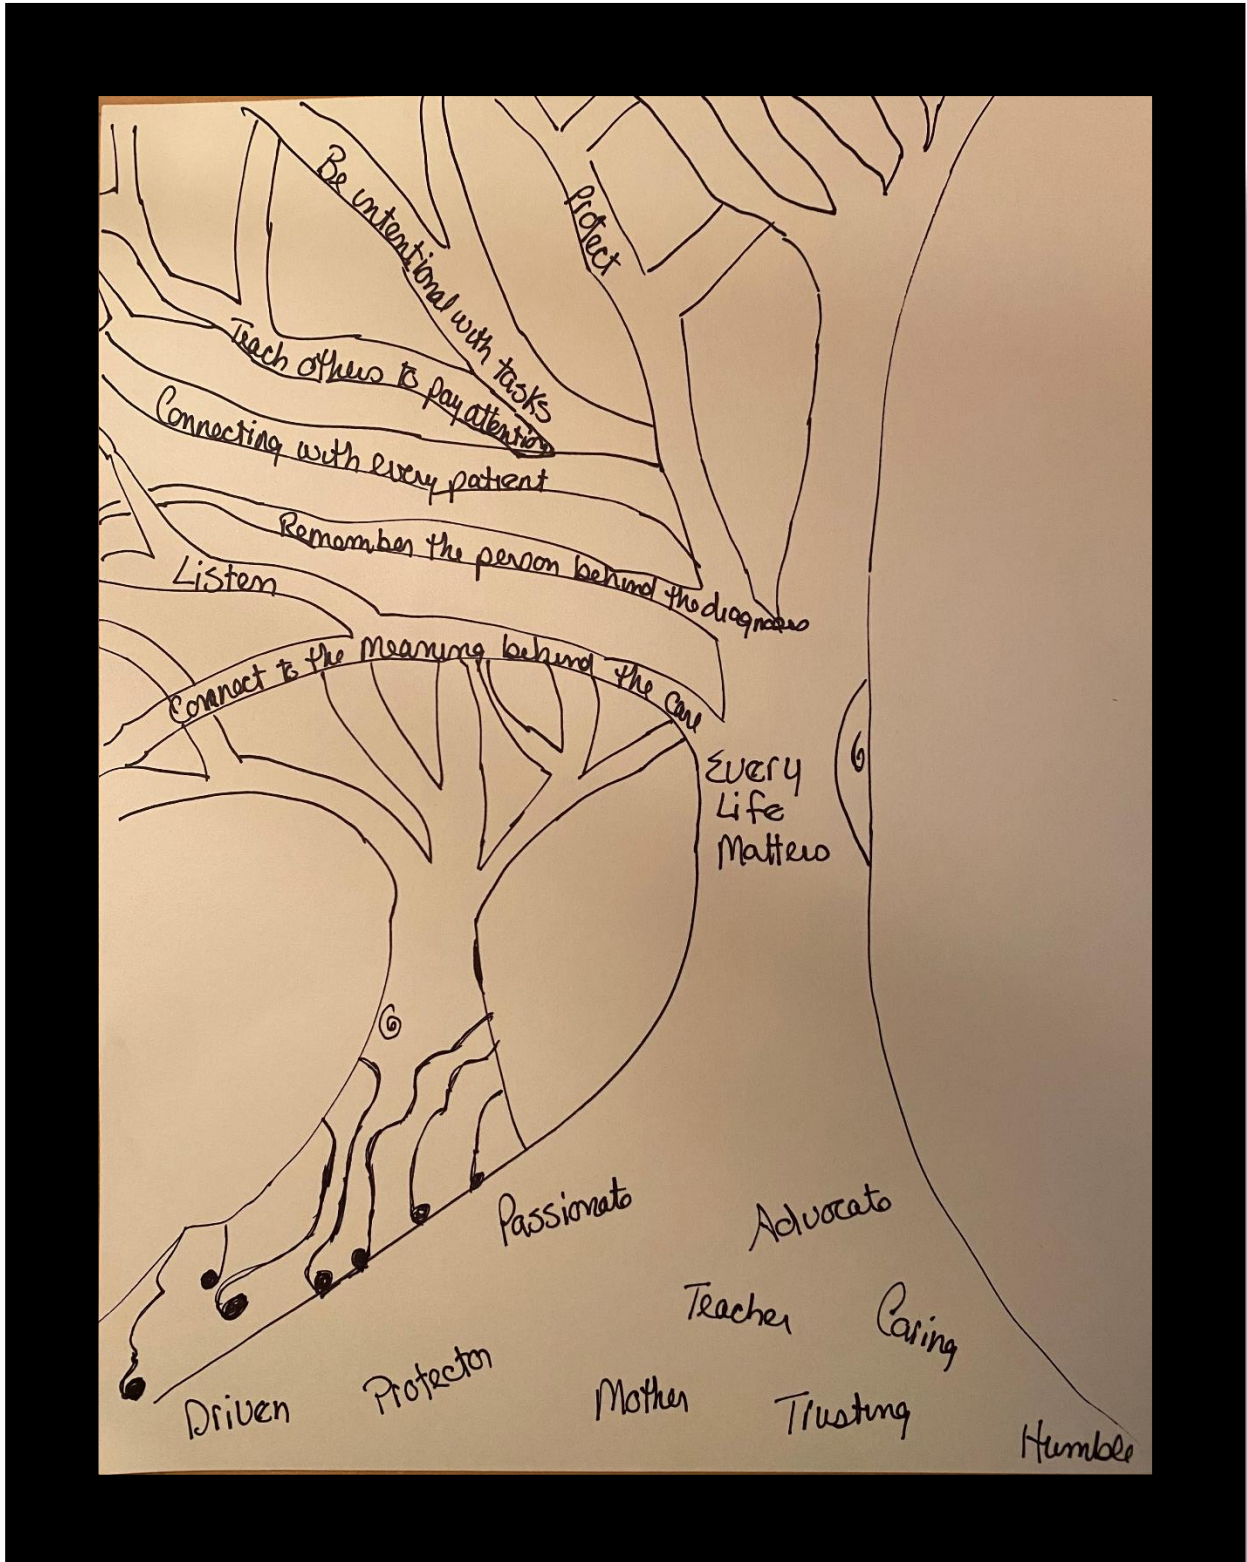 Be intentional with tasks
Protect
Teach others to pay attention
Connecting with every patient
Remember the person behind the diagnoses
Listen
Connect to the Meaning behind the care
Every
Life
Matters
Passionate
Advocate
Teacher
Caring
Driven
Protector
Mother
Trusting
Humble